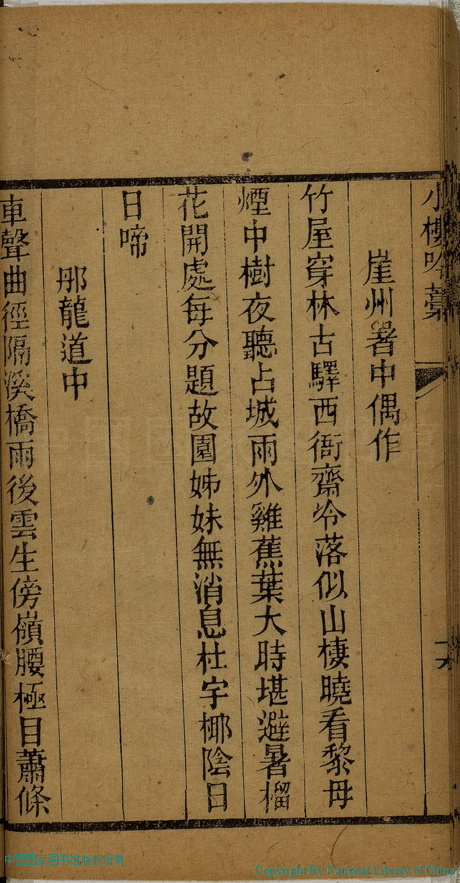 小樓吟藁
十六
崖州署中偶作
竹屋穿林古驛西衙齋冷落似山棲曉看黎母
煙中樹夜聽占城雨外雞蕉葉大時堪避暑榴
花開處每分題故園姊妹無消息杜宇椰陰日
日啼
那龍道中
車聲曲徑隔溪橋雨後雲生傍嶺腰極目蕭條
Copyright By National Library of China